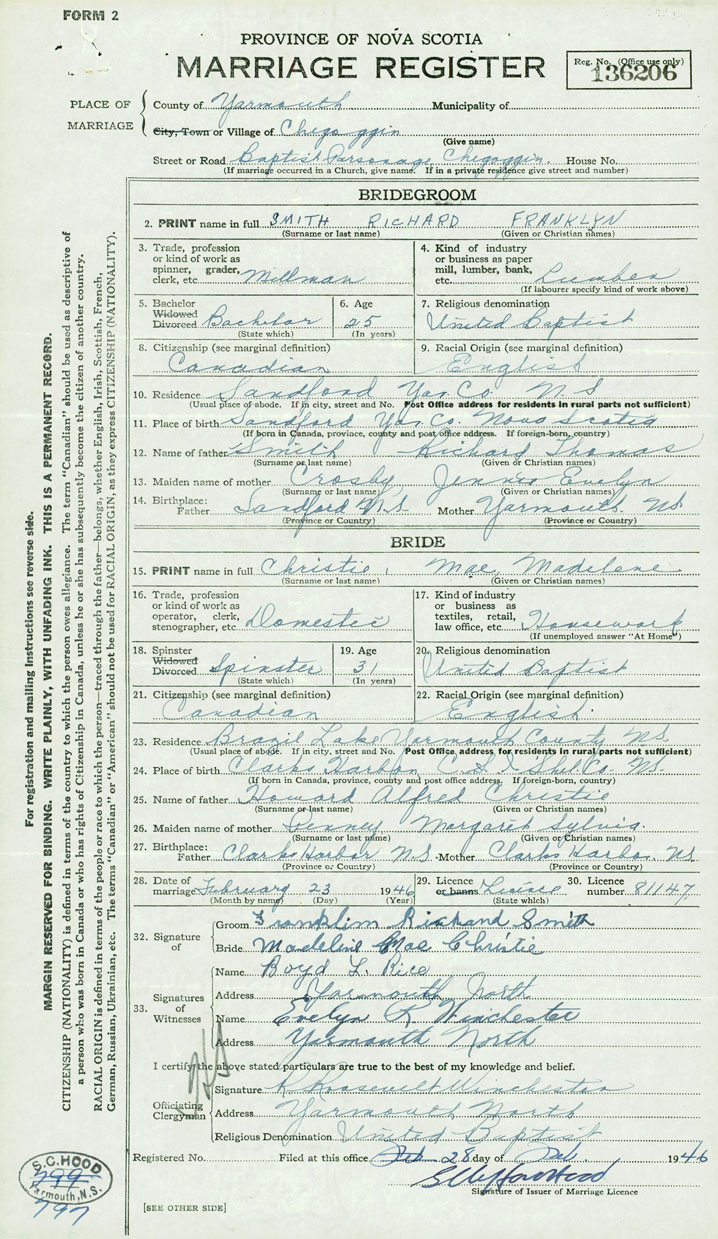 FORM 2
PROVINCE OF NOVA SCOTIA
MARRIAGE REGISTER
Reg. No. (Office use only)
136206
PLACE OF MARRIAGE
County of Yarmouth Municipality of
City, Town or Village of Chegoggin
(Give name)
Street or Road Baptist Parsonage, Chegoggin. House No.
(If marriage occurred in a Church, give name. If in a private residence give street and number)
BRIDEGROOM
2. PRINT name in full SMITH RICHARD FRANKLYN
(Surname or last name) (Given or Christian names)
3. Trade, profession or kind of work as spinner, grader, clerk, etc. Millman
4. Kind of industry or business as paper mill, lumber, bank, etc. Lumber
(If labourer specify kind of work above)
5. Bachelor Widowed Divorced Bachelor
(State which)
6. Age 25
(In years)
7. Religious denomination
United Baptist
8. Citizenship (see marginal definition)
Canadian
9. Racial Origin (see marginal definition)
English
10. Residence Sandford Yar. Co. N.S
(Usual place of abode. If in city, street and No. Post Office address for residents in rural parts not sufficient)
11. Place of birth Sandford Yar. Co. Nova Scotia
(If born in Canada, province, county and post office address. If foreign-born, country)
12. Name of father Smith Richard Thomas
(Surname or last name) (Given or Christian names)
13. Maiden name of mother Crosby Jennie Evelyn
(Surname or last name) (Given or Christian names)
14. Birthplace: Father Sandford N.S. Mother Yarmouth NS.
(Province or Country) (Province or Country)
BRIDE
15. PRINT name in full Christie, Mae, Madelene
(Surname or last name) (Given or Christian names)
16. Trade, profession or kind of work as operator, clerk, stenographer, etc. Domestic
17. Kind of industry or business as textiles, retail, law office, etc. Housework
(If unemployed answer "At Home")
18. Spinster Widowed Divorced Spinster
(State which)
19. Age 31
(In years)
20. Religious denomination
United Baptist
21. Citizenship (see marginal definition)
Canadian
22. Racial Origin (see marginal definition)
English.
23. Residence Brazil Lake Yarmouth County N.S.
(Usual place of abode. If in city, street and No. Post Office address for residents in rural parts not sufficient)
24. Place of birth Clarks Harbor Shel Co. NS.
(If born in Canada, province, county and post office address. If foreign-born, country)
25. Name of father Howard Alfred Christie
(Surname or last name) (Given or Christian names)
26. Maiden name of mother Kenney Margaret Sylvia
(Surname or last name) (Given or Christian names)
27. Birthplace: Father Clarks Harbor N.S. Mother Clarks Harbor, NS
(Province or Country) (Province or Country)
28. Date of marriage February 23 1946
(Month by name) (Day) (Year)
29. Licence or banns Licence
(State which)
30. Licence number 81147
32. Signature of
Groom Franklin Richard Smith
Bride Madeline Mae Christie
33. Signatures of Witnesses
Name Boyd L. Rice
Address Yarmouth North
Name Evelyn R. Winchester
Address Yarmouth North
I certify the above stated particulars are true to the best of my knowledge and belief.
Officiating Clergyman
Signature R Roosevelt Winchester
Address Yarmouth North
Religious Denomination United Baptist
Registered No. Filed at this office Feb 28 day of Feb 1946
Signature of Issuer of Marriage Licence
[SEE OTHER SIDE]
S. C. HOOD
799
Yarmouth, N.S.
797
For registration and mailing instructions see reverse side.
MARGIN RESERVED FOR BINDING. WRITE PLAINLY, WITH UNFADING INK. THIS IS A PERMANENT RECORD.
CITIZENSHIP (NATIONALITY) is defined in terms of the country to which the person owes allegiance. The term "Canadian" should be used as descriptive of
a person who was born in Canada or who has rights of Citizenship in Canada, unless he or she has subsequently become the citizen of another country.
RACIAL ORIGIN is defined in terms of the people or race to which the person—traced through the father—belongs, whether English, Irish, Scottish, French,
German, Russian, Ukrainian, etc. The terms "Canadian" or "American" should not be used for RACIAL ORIGIN, as they express CITIZENSHIP (NATIONALITY).